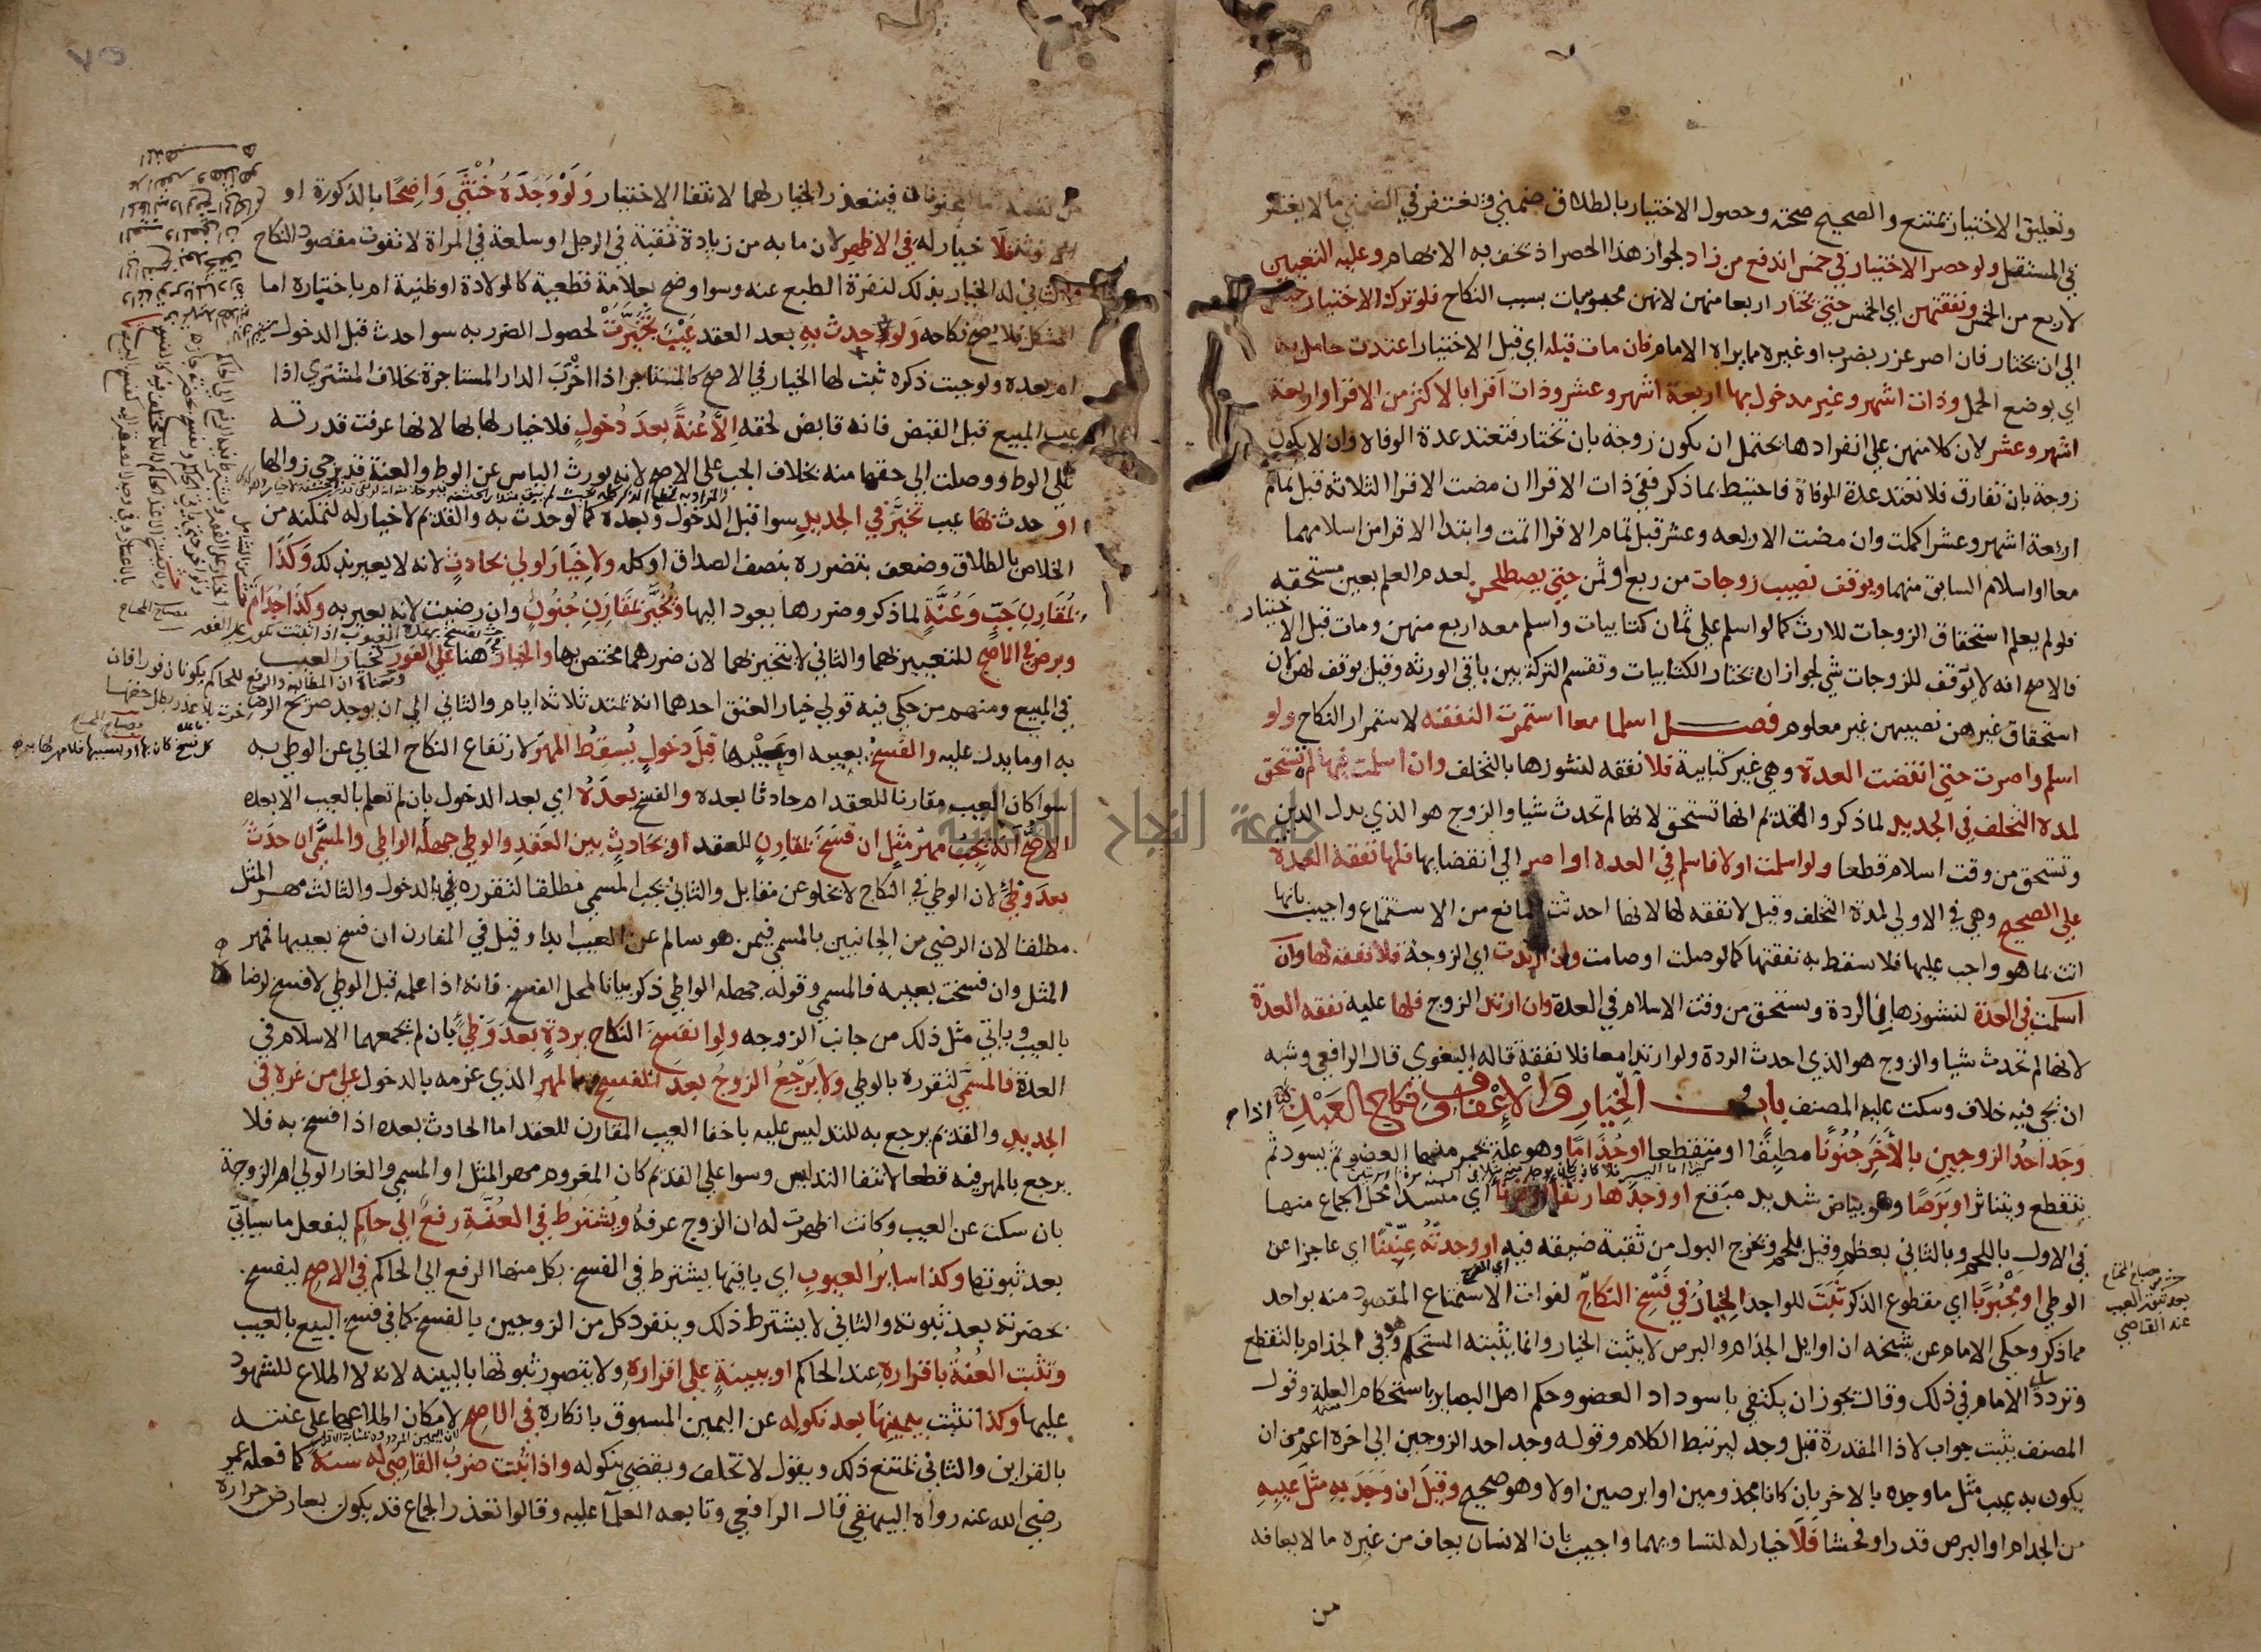 وتعليق الاختيار ممتنع والصحيح صحته وحصول الاختيار بالطلاق ضمني ويغتفر في الضمني ما لا يغتفر
في المستقل ولو حصر الاختيار في خمس اندفع من زاد لجواز هذا الحصر اذ تخف به الابهام وعليه التعيين
لاربع من الخمس ونفقتهن اي الخمس حتي يختار اربعا منهن لانهن محبوسات بسبب النكاح فلو ترك الاختيار حبس
الي ان يختار فان اصر عزر بضرب او غيره مما يراه الامام فان مات قبله اي قبل الاختيار اعتدت حامل به
اي بوضع الحمل وذات اشهر وغير مدخول بها اربعة اشهر وعشر وذات اقرا بالاكثر من الاقرا واربعة
اشهر وعشر لان كلا منهن علي انفرادها يحتمل ان يكون زوجة بان تختار فتعتد عدة الوفاه وان لا يكون
زوجة بان تفارق فلا تعتد عدة الوفاة فاحتيط بما ذكر ففي ذات الاقرا ان مضت الاقرا الثلاثة قبل تمام
اربعة اشهر وعشر اكملت وان مضت الاربعه وعشر قبل تمام الاقرا اتمت وابتدا الاقرا من اسلامهما
معا او اسلام السابق منهما ويوقف نصيب زوجات من ربع او ثمن حتي يصطلحن لعدم العلم بعين مستحقه
فلو لم يعلم استحقاق الزوجات للارث كما لو اسلم علي ثمان كتابيات واسلم معه اربع منهن ومات قبل الاختيار
فالاصح انه لا يوقف للزوجات شي لجواز ان يختار الكتابيات وتقسم التركة بين باقي الورثه وقيل يوقف لهن لان
استحقاق غيرهن نصيبهن غير معلوم فصل اسلما معا استمرت النفقه لاستمرار النكاح ولو
اسلم واصرت حتي انقضت العدة وهي غير كتابية فلا نفقه لنشوزها بالتخلف وان اسلمت فيها لم تستحق
لمدة التخلف في الجديد لما ذكر والقديم انها تستحق لانها لم تحدث شيا والزوج هو الذي بدل الدين
وتستحق من وقت اسلام قطعا ولو اسلمت اولا فاسلم في العدة او اصر الي انقضايها فلها نفقة العدة
علي الصحيح وهي في الاولي لمدة التخلف وقيل لا نفقه لها لانها احدثت المانع من الاستمتاع واجيب بانها
اتت بما هو واجب عليها فلا سقط به نفقتها كما لو صلت او صامت وان ارتدت اي الزوجة فلا نفقه لها وان
اسلمت في العدة لنشوزها في الردة وتستحق من وقت الاسلام في العدة وان ارتد الزوج فلها عليه نفقه العدة
لانها لم تحدث شيا والزوج هو الذي احدث الردة ولو ارتدا معا فلا نفقة قاله البغوي قال الرافعي وشبه
ان يجي فيه خلاف وسكت عليه المصنف باب الخيار والاعفاف ونكاح العبد اذا
وجد احد الزوجين بالاخر جنونا مطبقا او متقطعا او جذاما وهو علة يحمر منها العضو ثم يسود ثم
يتقطع ويتناثر او برصا وهو بياض شديد مبقع او وجدها رتقا او قرنا اي منسدا محل الجماع منها
في الاول باللحم وبالثاني بعظم وقيل بلحم وتخرج البول من ثقبة ضيقه فيه او وجدته عنينا اي عاجزا عن
الوطي او مجبوبا اي مقطوع الذكر ثبت للواجد الخيار في فسخ النكاح لفوات الاستمتاع المقصود منه بواحد
مما ذكر وحكي الامام عن شيخه ان اوايل الجذام والبرص لا يثبت الخيار وانما يثبته المستحكم وهو في الجذام بالتقطع
وتردد الامام في ذلك وقال يجوز ان يكتفي باسوداد العضو وحكم اهل البصاير باستحكام العلة وقول
المصنف يثبت جواب لاذا المقدرة قبل وجد ليرتبط الكلام وقوله وجد احد الزوجين الي اخره اعم من ان
يكون به عيب مثل ما وجده بالاخر بان كانا مجذومين او ابرصين اولا وهو صحيح وقيل ان وجد به مثل عيبه
من الجذام او البرص قدرا وفحشا فلا خيار له لتساويهما واجيب بان الانسان يعاف من غيره ما لا يعافه
من
مصباح المحتاج
بعد ثبوت العيب
عند القاضي
من نفسه اما المجنونان فيتعذر الخيار لهما لانتفا الاختيار ولو وجده خنثي واضحا بالذكورة او
الانوثة فلا خيار له في الاظهر لان ما به من زيادة ثقبة في الرجل او سلعة في المراة لا تفوت مقصود النكاح
والثاني له الخيار بذلك لنفرة الطبع عنه وسوا وضح بعلامة قطعية كالولادة او ظنية ام باختياره اما
المشكل فلا يصح نكاحه ولو حدث به بعد العقد عيب تخيرت لحصول الضرر به سوا حدث قبل الدخول
ام بعده ولو جبت ذكره ثبت لها الخيار في الاصح كالمستاجر اذا خرب الدار المستاجرة بخلاف المشتري اذا
عيب المبيع قبل القبض فانه قابض لحقه الا عنة بعد دخول فلا خيار لها بها لانها عرفت قدرته
علي الوطي ووصلت الي حقها منه بخلاف الجب علي الاصح لانه يورث الياس عن الوطي والعنة قد يرجي زوالها
او حدث بها عيب تخير في الجديد سوا قبل الدخول وبعده كما لو حدث به والقديم لا خيار له لتمكنه من
الخلاص بالطلاق وضعف بتضرره بنصف الصداق او كله ولا خيار لولي بحادث لانه لا يعير بذلك وكذا
بمقارن جب وعنة لما ذكر وضررها يعود اليها ويخير بمقارن جنون وان رضيت لانه يعير به وكذا جذام
وبرص في الاصح للتعيير بهما والثاني لا يتخير بهما لان ضررهما مختص بها والخيار هنا علي الفور كخيار العيب
في المبيع ومنهم من حكي فيه قولي خيار العتق احدهما انه تمتد ثلاثة ايام والثاني الي ان يوجد صريح الرضا
به او ما يدل عليه والفسخ بعيبه او عيبها قبل دخول يسقط المهر لارتفاع النكاح الخالي عن الوطي به
سوا كان العيب مقارنا للعقد ام حادثا بعده والفسخ بعده اي بعد الدخول بان لم تعلم بالعيب الا بعده
الاصح انه يجب مهر مثل ان فسخ بمقارن للعقد او بحادث بين العقد والوطي جهله الواطي والمسمي ان حدث
بعد وطي لان الوطي في النكاح لا يخلو عن مقابل والثاني يجب المسمي مطلقا لتقرره بالدخول والثالث مهر المثل
مطلقا لان الرضي من الجانبين بالمسمي فيمن هو سالم عن العيب ابدا وقيل في المقارن ان فسخ بعيبها فمهر
المثل وان فسخت بعيبه فالمسمي وقوله جهله الواطي ذكر بيانا لمحل الفسخ فانه اذا علمه قبل الوطي لا فسخ لرضاه
بالعيب وياتي مثل ذلك من جانب الزوجه ولو انفسخ النكاح بردة بعد وطي بان لم يجمعهما الاسلام في
العدة فالمسمي لتقرره بالوطي ولا يرجع الزوج بعد الفسخ بالمهر الذي غرمه بالدخول علي من غره في
الجديد والقديم يرجع به للتدليس عليه باخفا العيب المقارن للعقد اما الحادث بعده اذا فسخ به فلا
يرجع بالمهر فيه قطعا لانتفا التدليس وسوا علي القديم كان المغروم مهر المثل او المسمي والغار الولي ام الزوجة
بان سكت عن العيب وكانت اظهرت له ان الزوج عرفه ويشترط في العنة رفع الي حاكم ليفعل ما سياتي
بعد ثبوتها وكذا ساير العيوب اي باقيها يشترط في الفسخ بكل منها الرفع الي الحاكم في الاصح ليفسخ
بحضرته بعد ثبوته والثاني لا يشترط ذلك وينفرد كل من الزوجين بالفسخ كما في فسخ البيع بالعيب
وتثبت العنة باقراره عند الحاكم او ببينة علي اقراره ولا يتصور ثبوتها بالبينه لانه لا اطلاع للشهود
عليها وكذا تثبت بيمينها بعد نكوله عن اليمين المسبوق بانكاره في الاصح لامكان اطلاعها علي عنته
بالقراين والثاني تمتنع ذلك ويقول لا تحلف ويقضي بنكوله واذا ثبت ضرب القاضي له سنة كما فعله عمر
رضي الله عنه رواه البيهقي قال الرافعي وتابعه العلما عليه وقالوا تعذر الجماع قد يكون بعارض حرارة
جامعة النجاح الوطنية